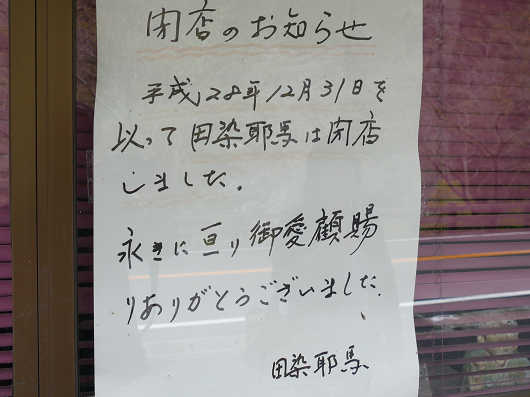 閉店のお知らせ
平成28年12月31日を
以って田染耶馬は閉店
しました。
永きに亘り御愛顧賜
りありがとうございました。
田染耶馬